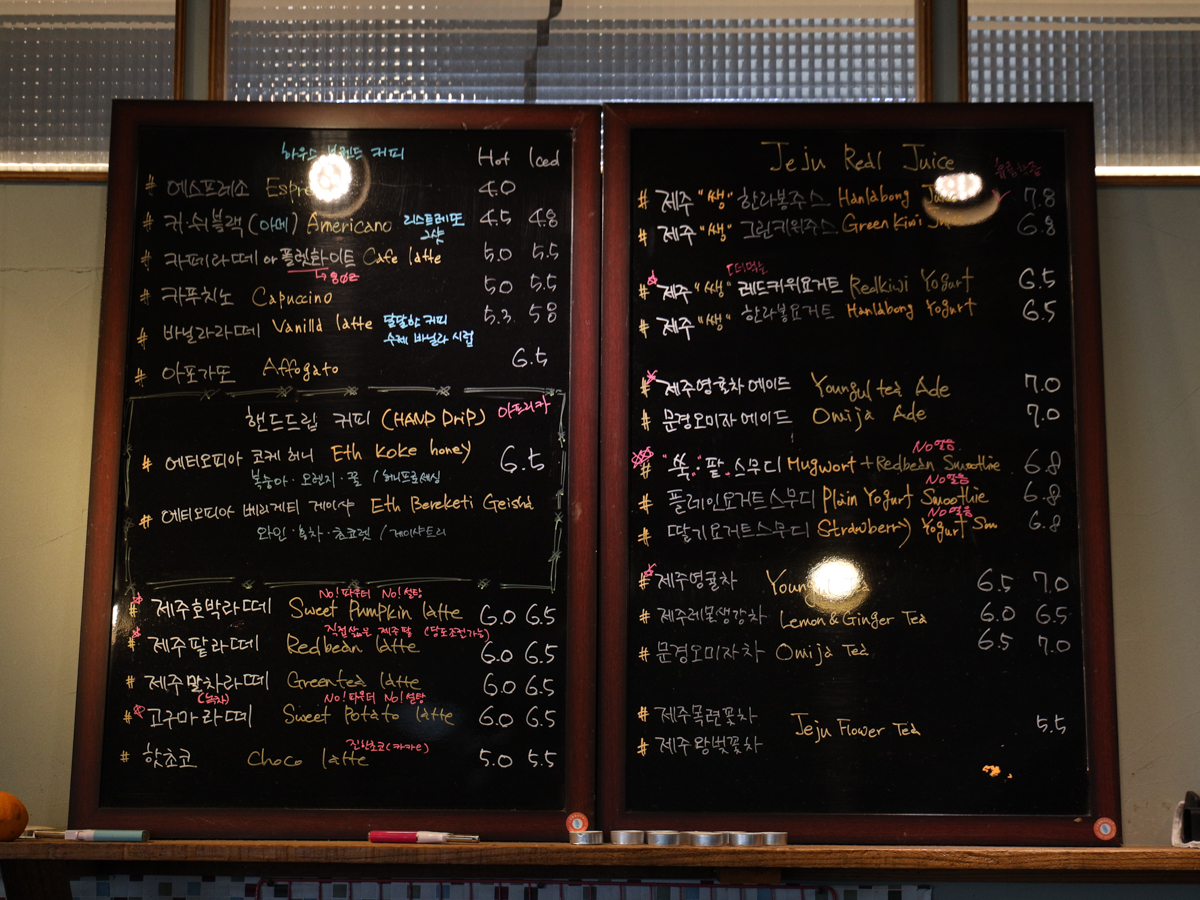 하우스 블렌드 커피 Hot Iced
# 에스프레소 Espre 4.0
# 커쉬블랙(아메) Americano 리스트레또 4.5 4.8
2샷
# 카페라떼 or 플랫화이트 Cafe latte 5.0 5.5
↳ 8oz
# 카푸치노 Capuccino 5.0 5.5
# 바닐라라떼 Vanilla latte 달달한 커피 5.3 5.8
수제 바닐라 시럽
# 아포가또 Affogato 6.5
핸드드립 커피 (HAND DRiP) 아프리카
# 에티오피아 코케 허니 Eth Koke honey 6.5
복숭아·오렌지·꿀 / 허니프로세싱
# 에티오피아 베리게티 게이샤 Eth Bereketi Geisha
와인·홍차·초코렛 / 게이샤토리
No! 파우더 No! 설탕
# 제주호박라떼 Sweet Pumpkin latte 6.0 6.5
직접삶은 제주팥 (당도조절가능)
# 제주팥라떼 Redbean latte 6.0 6.5
# 제주말차라떼 Greentea latte 6.0 6.5
(녹차) No! 파우더 No! 설탕
# 고구마라떼 Sweet Potato latte 6.0 6.5
진한초코(카카오)
# 핫초코 Choco latte 5.0 5.5
Jeju Real Juice
# 제주 "쌩" 한라봉주스 Hanlabong 7.8
# 제주 "쌩" 그린키위주스 Green Kiwi 6.8
떠먹는
# 제주 "쌩" 레드키위요거트 Redkiwi Yogurt 6.5
# 제주 "쌩" 한라봉요거트 Hanlabong Yogurt 6.5
# 제주영귤차에이드 Youngul tea Ade 7.0
# 문경오미자에이드 Omija Ade 7.0
No얼음
# "쑥·팥·스무디 Mugwort + Redbean Smoothie 6.8
No얼음
# 플레인요거트스무디 Plain Yogurt Smoothie 6.8
No얼음
# 딸기요거트스무디 Strawberry Yogurt Smo 6.8
# 제주영귤차 Young 6.5 7.0
# 제주레몬생강차 Lemon & Ginger Tea 6.0 6.5
# 문경오미자차 Omija Tea 6.5 7.0
# 제주목련꽃차
Jeju Flower Tea 5.5
# 제주왕벚꽃차